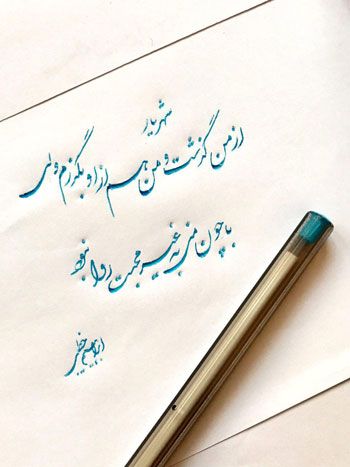 شهریار
از من گذشت و من هم از او بگذرم ولی
با چون منی به غیر محبت روا نبود
ابراهیم خطیبی